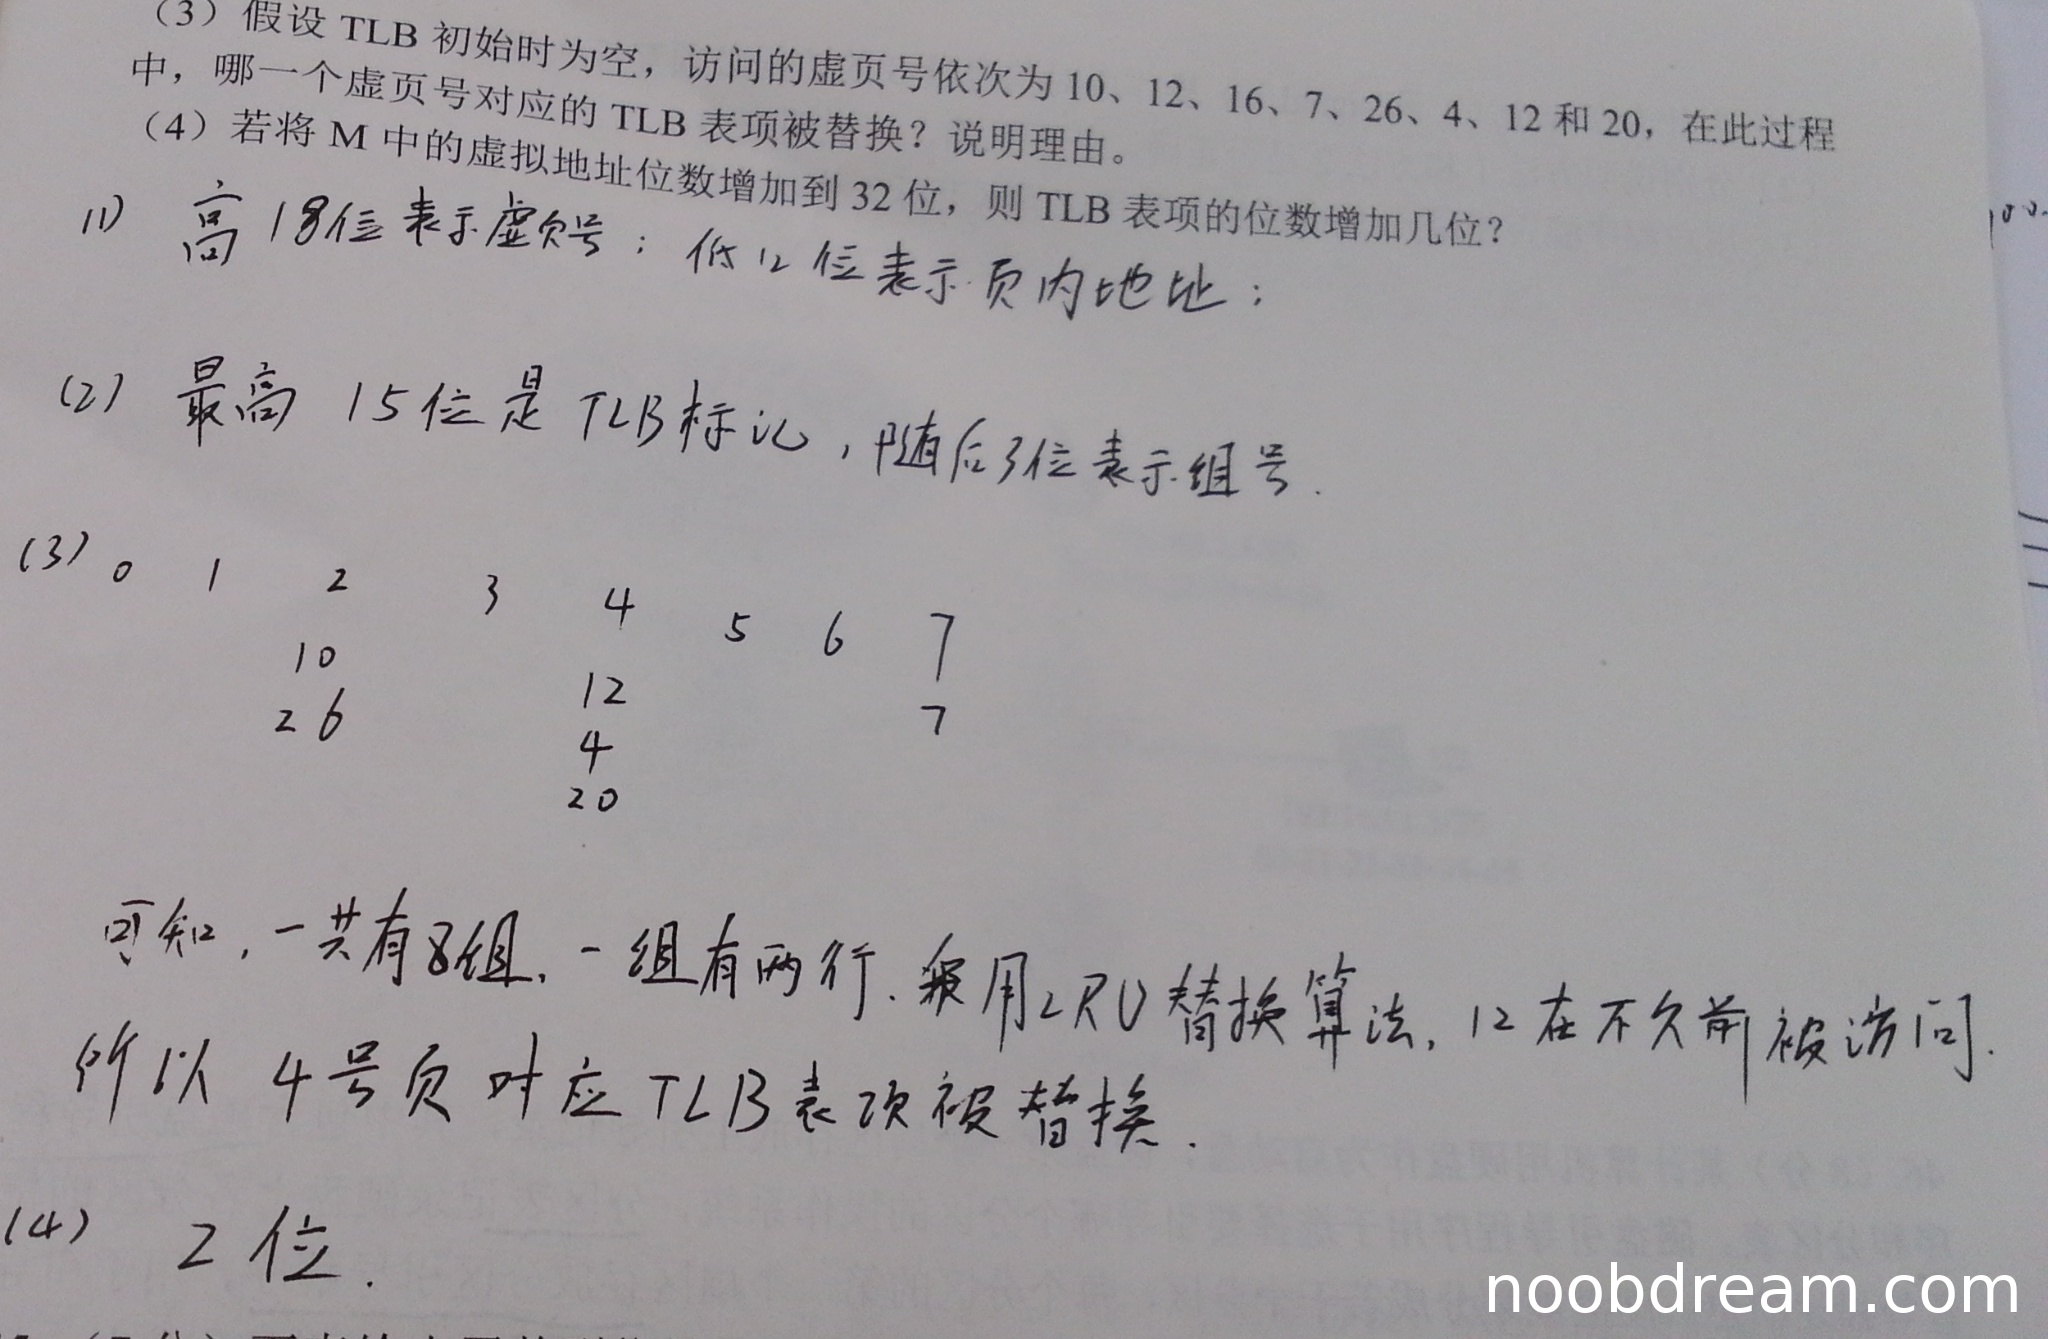 (3) 假设 TLB 初始时为空，访问的虚页号依次为 10、12、16、7、26、4、12 和 20，在此过程
中，哪一个虚页号对应的 TLB 表项被替换？说明理由。
(4) 若将 M 中的虚拟地址位数增加到 32 位，则 TLB 表项的位数增加几位？
(1) 高18位表示虚页号；低12位表示页内地址；
(2) 最高 15位是TLB标记，随后3位表示组号.
(3) 0 1 2 3 4 5 6 7
10 12 7
26 4
20
可知，一共有8组，一组有两行.采用LRU替换算法，12在不久前被访问.
所以 4号页对应TLB表项被替换.
(4) 2位.
noobdream.com